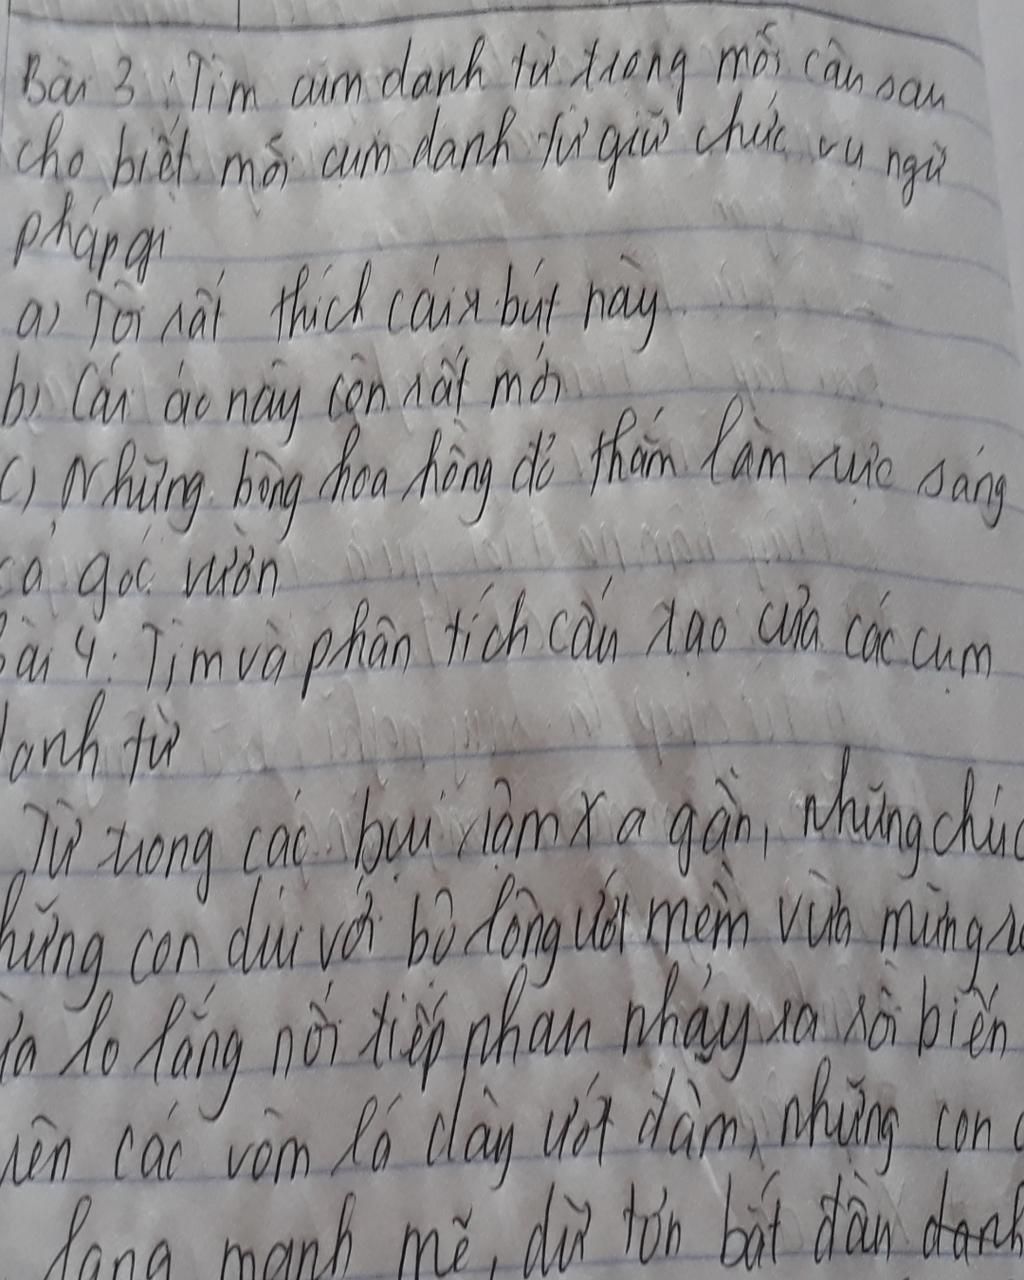 Bài 3: Tìm cụm danh từ trong mỗi câu sau
cho biết mỗi cụm danh từ giữ chức vụ ngữ
pháp gì
a) Tôi rất thích cái bút này
b) Cái áo này còn rất mới
c) Những bông hoa hồng đỏ thắm làm rực sáng
cả góc vườn
Bài 4: Tìm và phân tích cấu tạo của các cụm
danh từ
Từ trong các bụi rậm xa gần, những chú
những con dúi với bộ lông ướt mềm vừa mừng
lo lắng nối tiếp nhau nhảy ra rồi biến
trên các vòm lá dày ướt đẫm, những con
lang mạnh mẽ, dữ tợn bắt đầu